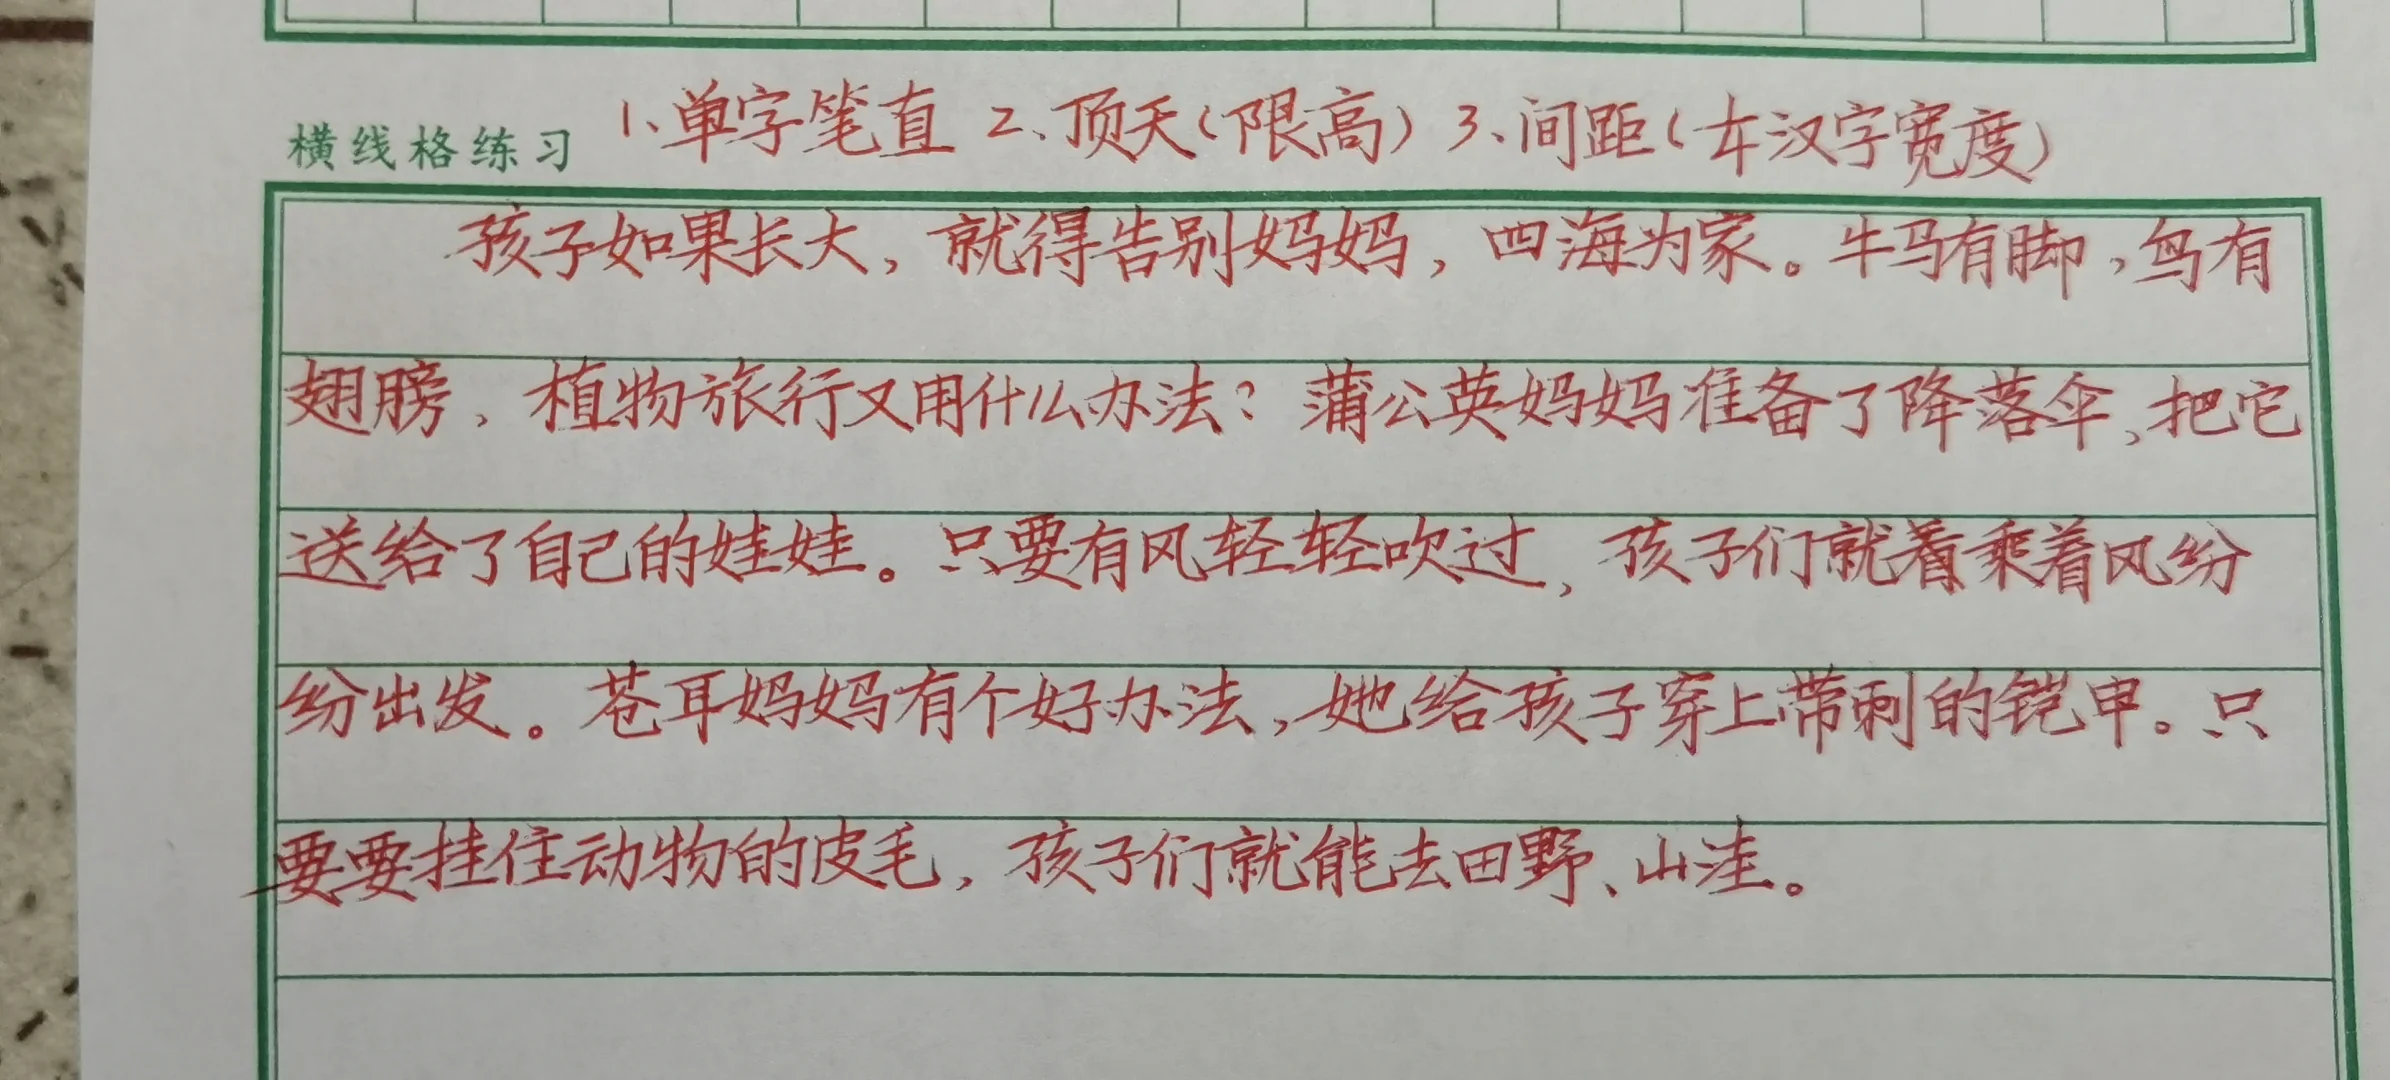 横线格练习 1、单字笔直 2、顶天(限高) 3、间距(字汉字宽度)
孩子如果长大，就得告别妈妈，四海为家。牛马有脚，鸟有
翅膀，植物旅行又用什么办法？蒲公英妈妈准备了降落伞，把它
送给了自己的娃娃。只要有风轻轻吹过，孩子们就着乘着风纷
纷出发。苍耳妈妈有个好办法，她给孩子穿上带刺的铠甲。只
要要挂住动物的皮毛，孩子们就能去田野、山洼。